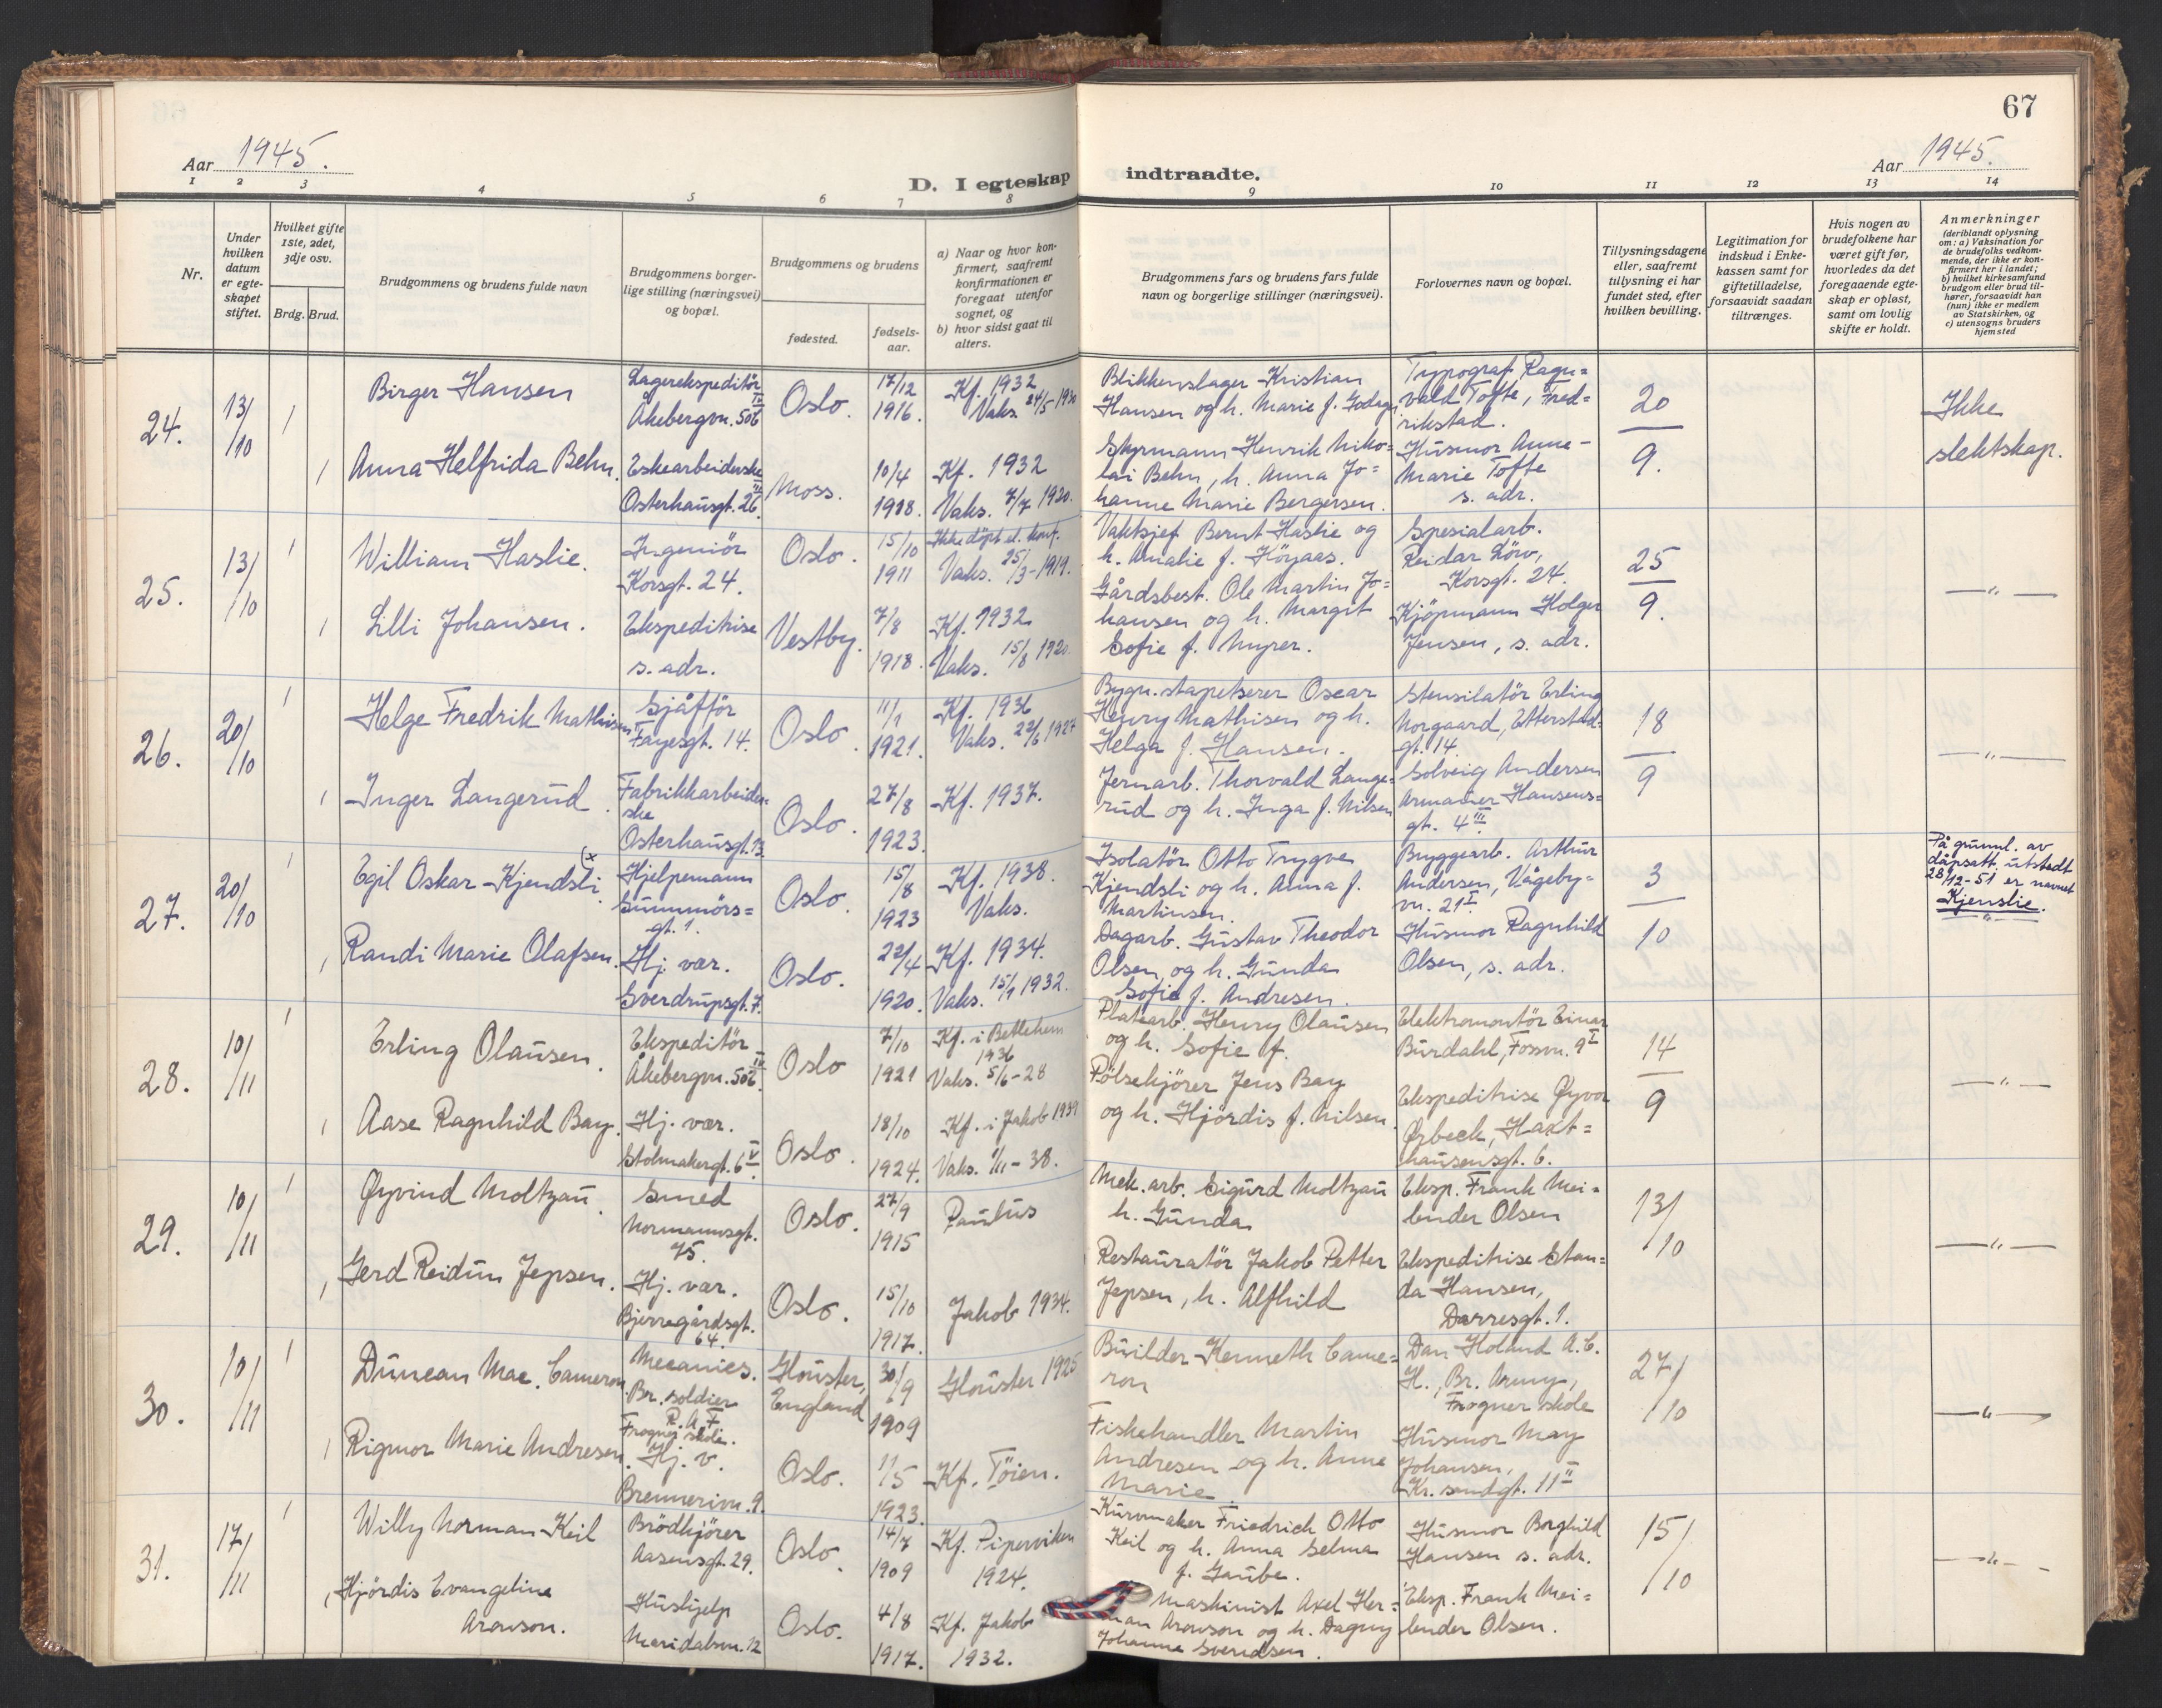 67
Aar 1945.
D. I egteskap
indtraadte.
Aar 1945.
1 2 3 4 5 6 7 8 9 10 11 12 13 14
Nr.
Under
hvilken
datum
er egte-
skapet
stiftet.
Hvilket gifte
1ste, 2det,
3dje osv.
Brdg. Brud.
Brudgommens og brudens fulde navn
Brudgommens borger-
lige stilling (næringsvei)
og bopæl.
Brudgommens og brudens
fødested.
fødsels-
aar.
a) Naar og hvor kon-
firmert, saafremt
konfirmationen er
foregaat utenfor
sognet, og
b) hvor sidst gaat til
alters.
Brudgommens fars og brudens fars fulde
navn og borgerlige stillinger (næringsvei).
Forlovernes navn og bopæl.
Tillysningsdagene
eller, saafremt
tillysning ei har
fundet sted, efter
hvilken bevilling.
Legitimation for
indskud i Enke-
kassen samt for
giftetilladelse,
forsaavidt saadan
tiltrænges.
Hvis nogen av
brudefolkene har
været gift før,
hvorledes da det
foregaaende egte-
skap er opløst,
samt om lovlig
skifte er holdt.
Anmerkninger
(deriblandt oplysning
om: a) Vaksination for
de brudefolks vedkom-
mende, der ikke er kon-
firmert her i landet;
b) hvilket kirkesamfund
brudgom eller brud til-
hører, forsaavidt han
(hun) ikke er medlem
av Statskirken, og
c) utensogns bruders
hjemsted
24.
13/10
1
Birger Hansen
Lagerekspeditör
Åkebergvn. 50b IV
Oslo.
17/12
1916.
Kf. 1932
Vaks. 24/5 1930
Blikkenslager Kristian
Hansen og h. Marie f.
Typograf Ragn=
vald Tofte, Fred=
rikstad.
20
9.
Ikke
slektskap.
1
Anna Helfrida Behn.
Eskearbeiderske
Osterhausgt. 26 III
Moss.
10/4
1918.
Kf. 1932
Vaks. 7/7 1920.
Styrmann Henrik Niko=
lai Behn, h. Anna Jo=
hanne Marie Bergersen.
Husmor Anne-
Marie Tofte
s. adr.
25.
13/10
1
William Haslie.
Ingeniör
Korsgt. 24.
Oslo.
15/10
1911
Ikke döpt el. konf.
Vaks. 25/3-1919.
Vaktsjef Bernt Haslie og
h. Amalie f. Höyaas.
Spesialarb.
Reidar Löw,
Korsgt. 24.
25
9.
— " —
1
Lilli Johansen.
Ekspeditrise
s. adr.
Vestby.
7/8
1918.
Kf. 1932
Vaks. 15/8 1920.
Gårdsbest. Ole Martin Jo=
hansen og h. Margit
Sofie f. Myrer.
Kjöpmann Holger
Jensen, s. adr.
26.
20/10
1
Helge Fredrik Mathisen
Sjåfför
Fayesgt. 14.
Oslo.
11/1
1921.
Kf. 1936
Vaks. 22/6 1927
Bygn.stapetserer Oscar
Henry Mathisen og h.
Helga f. Hansen.
Stensilatör Erling
Norgaard, Etterstad=
gt. 14.
18
9
— " —
1
Inger Langerud.
Fabrikkarbeider=
ske
Osterhausgt. 13.
Oslo.
27/8
1923.
Kf. 1937.
Jernarb. Thorvald Lange=
rud og h. Inga f. Nilsen
Solveig Andersen
Armauer Hansens=
gt. 4 III.
27.
20/10
1
Egil Oskar Kjendsli. x)
Hjelpemann
Sunnmörs=
gt. 1.
Oslo.
15/8
1923
Kf. 1938.
Vaks.
Isolatör Otto Trygve
Kjendsli og h. Anna f.
Martinsen.
Byggearb. Arthur
Andersen, Vågeby=
vn. 21 I.
3
10
På grunnl. av
dåpsatt. utstedt
28/12-51 er navnet
Kjenslie.
"
1
Randi Marie Olafsen.
Hj. vær.
Sverdrupsgt. 7.
Oslo.
22/4
1920.
Kf. 1934.
Vaks. 15/9 1932.
Dagarb. Gustav Theodor
Olsen, og h. Gunda
Sofie f. Andresen.
Husmor Ragnhild
Olsen, s. adr.
28.
10/11
1
Erling Olausen.
Ekspeditör
Åkebergvn. 50b IV.
Oslo
7/10
1921
Kf. i Betlehem
1936
Vaks. 5/6-28
Platearb. Henry Olausen
og h. Sofie f.
Elektromontör Einar
Burdahl, Fossvn. 9 I
14
9
— " —
1
Aase Ragnhild Bay.
Hj. vær.
Stolmakergt. 6 V.
Oslo.
18/10
1924.
Kf. i Jakob 1939
Vaks. 1/11-38.
Pölsekjörer Jens Bay
og h. Hjördis f. Nilsen.
Ekspeditrise Øyvor
Ørbeck, Haxt=
hausensgt. 6.
29.
10/11
1
Øyvind Moltzau.
Smed
Normannsgt.
45.
Oslo.
27/9
1915
Paulus
Mek. arb. Sigurd Moltzau
h. Gunda
Eksp. Frank Mei=
lender Olsen
13/10
— " —
1
Gerd Reidun Jepsen.
Hj. vær.
Bjerregårdsgt.
64.
Oslo.
15/10
1917.
Jakob 1934.
Restauratör Jakob Petter
Jepsen, h. Alfhild
Ekspeditrise Stan=
da Hansen,
Darresgt. 1.
30.
10/11
1
Duncan Mac. Cameron.
Mecanics.
Br. soldier
R.A.F
Frogner skole.
Glouster,
England
30/9
1909
Glouster 1925
Builder Kenneth Came=
ron
Dan Holand A.C.
H., Br. Army,
Frogner skole
27/10
— " —
1
Rigmor Marie Andresen.
Hj. v.
Brennerivn. 9.
Oslo.
1/5
1923.
Kf. Töien.
Fiskehandler Martin
Andresen og h. Anne
Marie
Husmor May
Johansen,
Kr. sandgt. 11 II
31.
17/11
1
Willy Norman Keil
Brödkjörer
Aasensgt. 29.
Oslo.
14/7
1909
Kf. Piperviken
1924.
Kurvmaker Friedrich Otto
Keil og h. Anna Selma
f. Gaube.
Husmor Borghild
Hansen s. adr.
15/10
— " —
1
Hjördis Evangeline
Aronson.
Hushjelp
Maridalsvn. 12
Oslo.
4/8
1917.
Kf. Jakob
1932.
Maskinist Axel Her=
man Aronson og h. Dagny
Johanne Svendsen.
Eksp. Frank Mei=
lender Olsen.